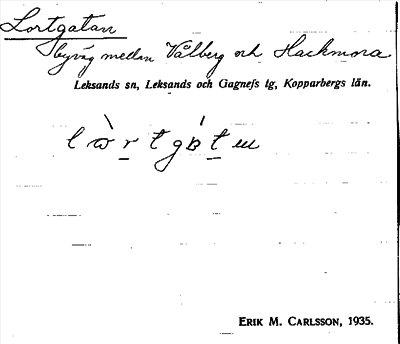 Lortgatan
byväg mellan Vålberg och Hackmora
Leksands sn, Leksands och Gagnefs tg, Kopparbergs län.
ERIK M. CARLSSON, 1935.